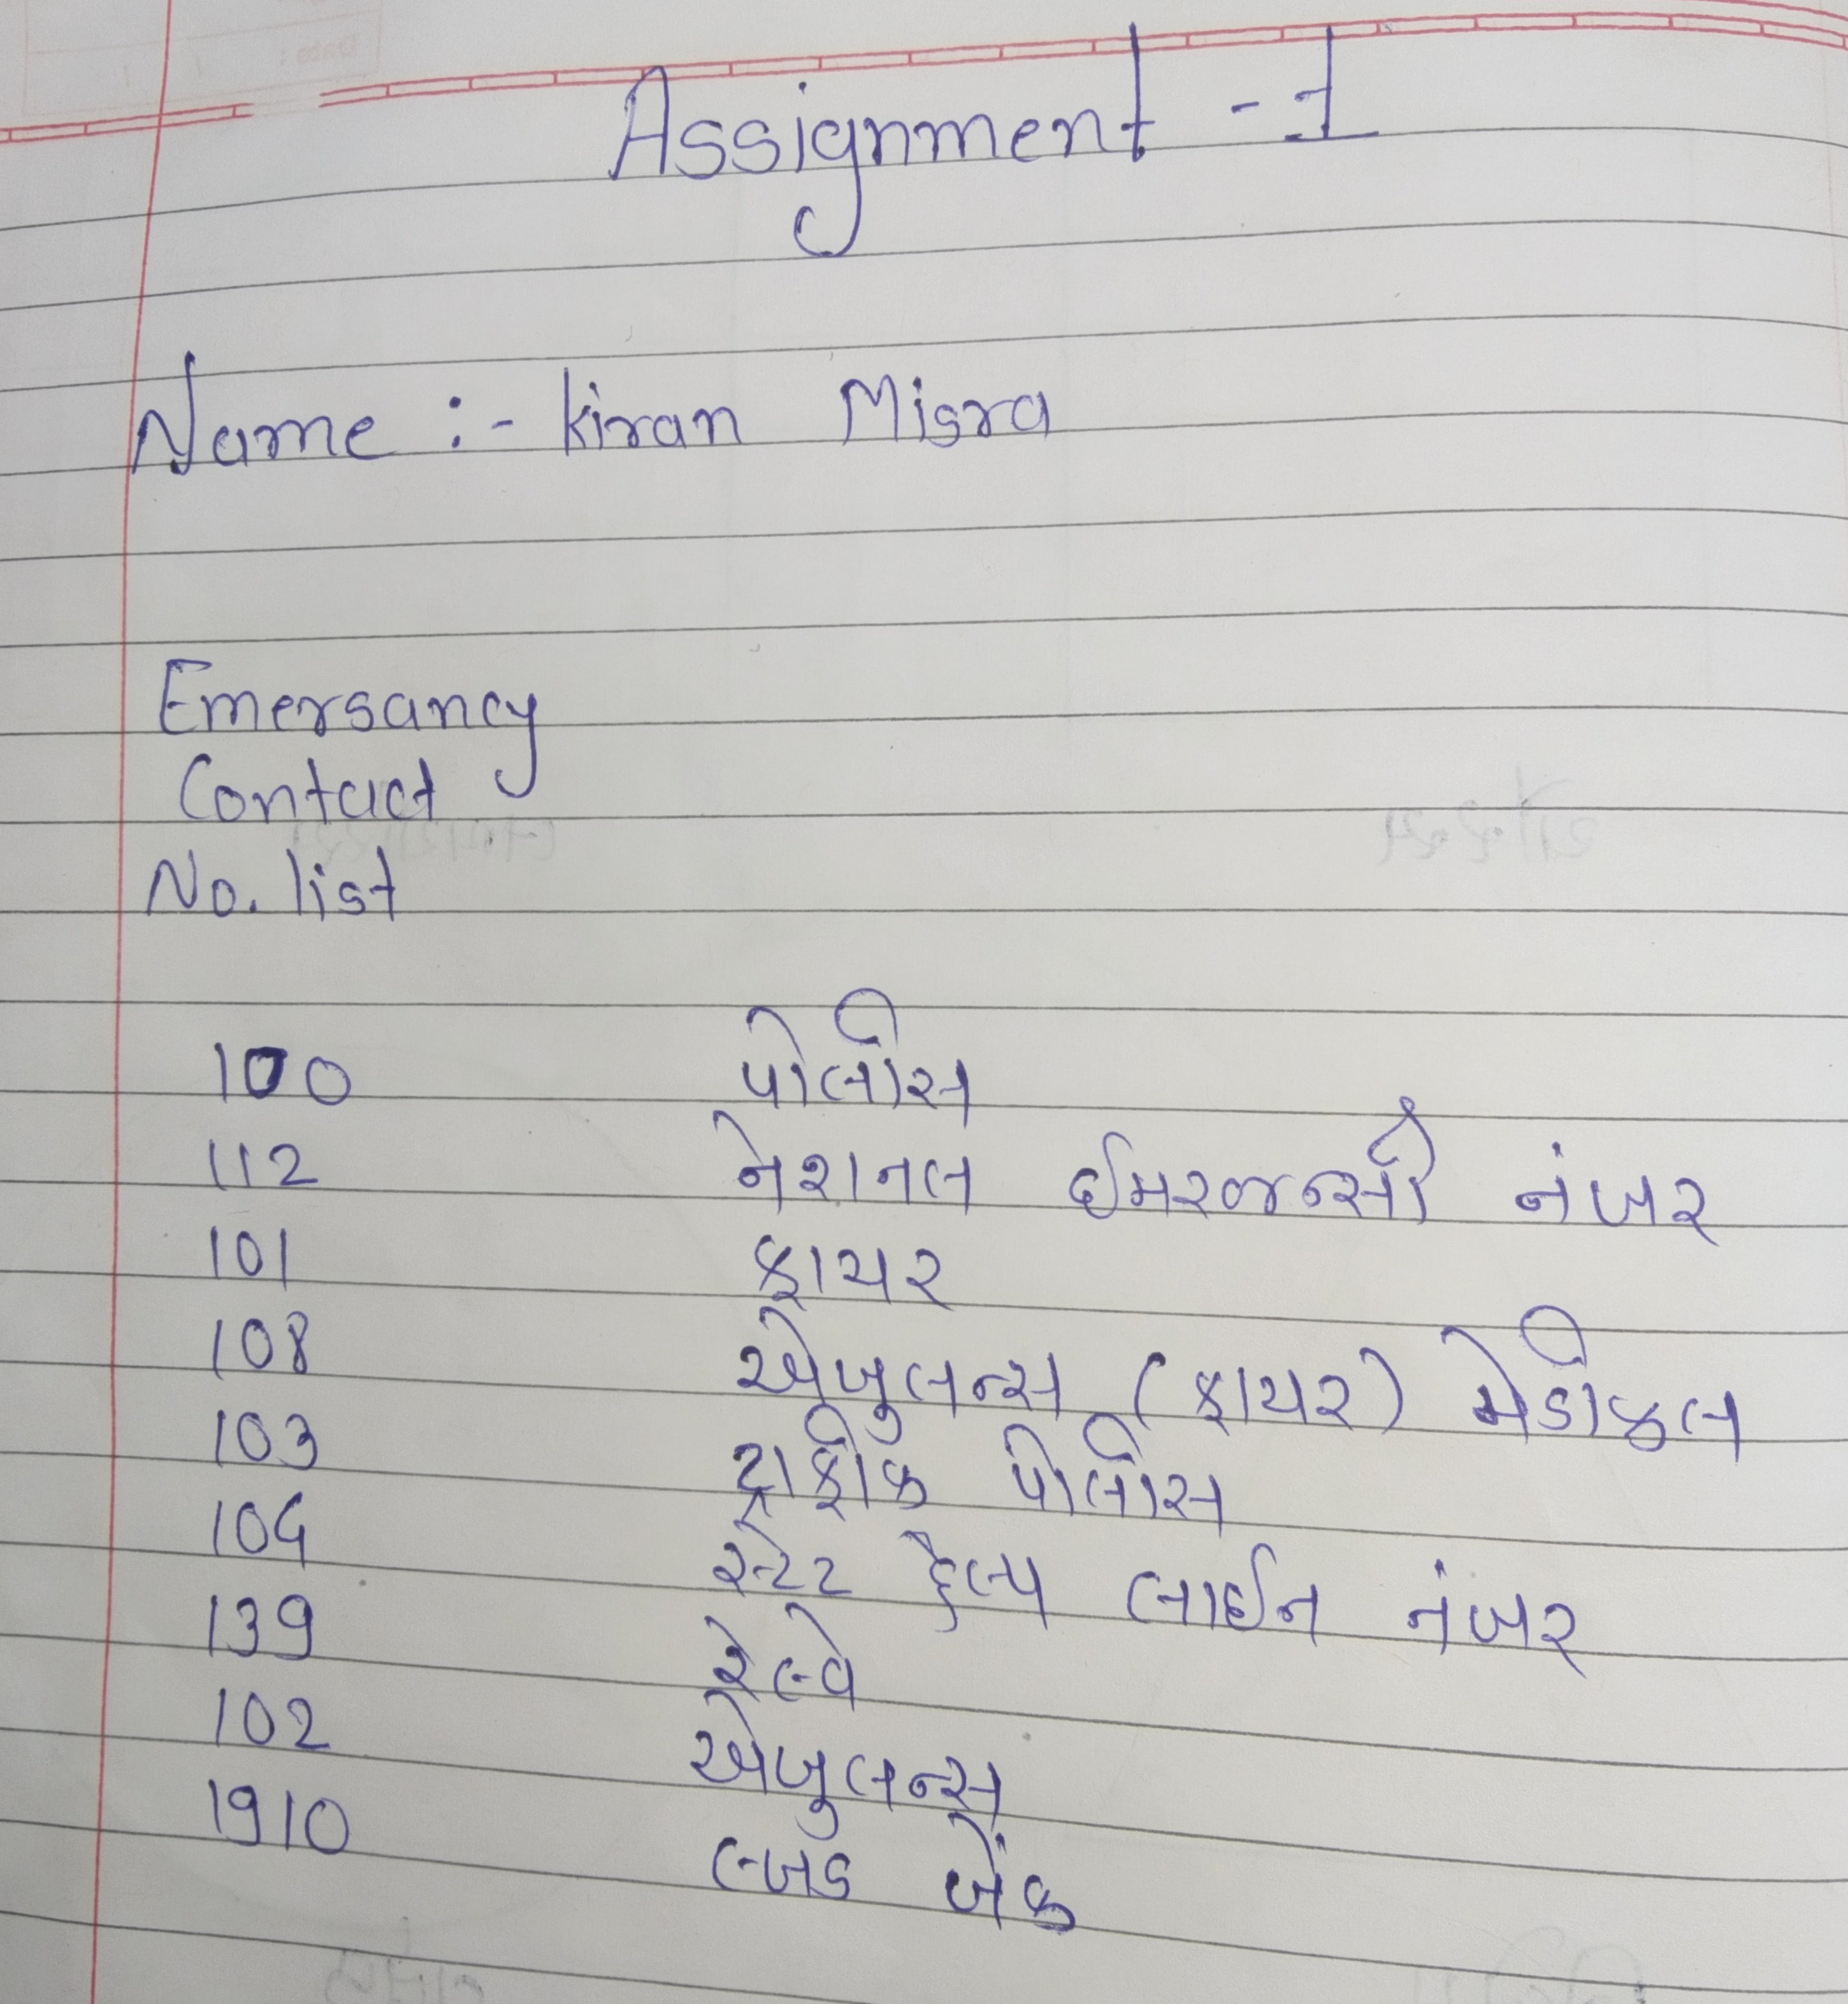 Assignment - 1
Name :- Kiran Misra
Emersancy
Contact
No. list
100 પોલીસ
112 નેશનલ ઈમરજન્સી નંબર
101 ફાયર
108 એબુલન્સ (ફાયર) મેડીકલ
103 ટ્રાફીક પોલીસ
104 સ્ટેટ હેલ્પ લાઈન નંબર
139 રેલ્વે
102 એબુલન્સ
1910 લ્બડ બેંક